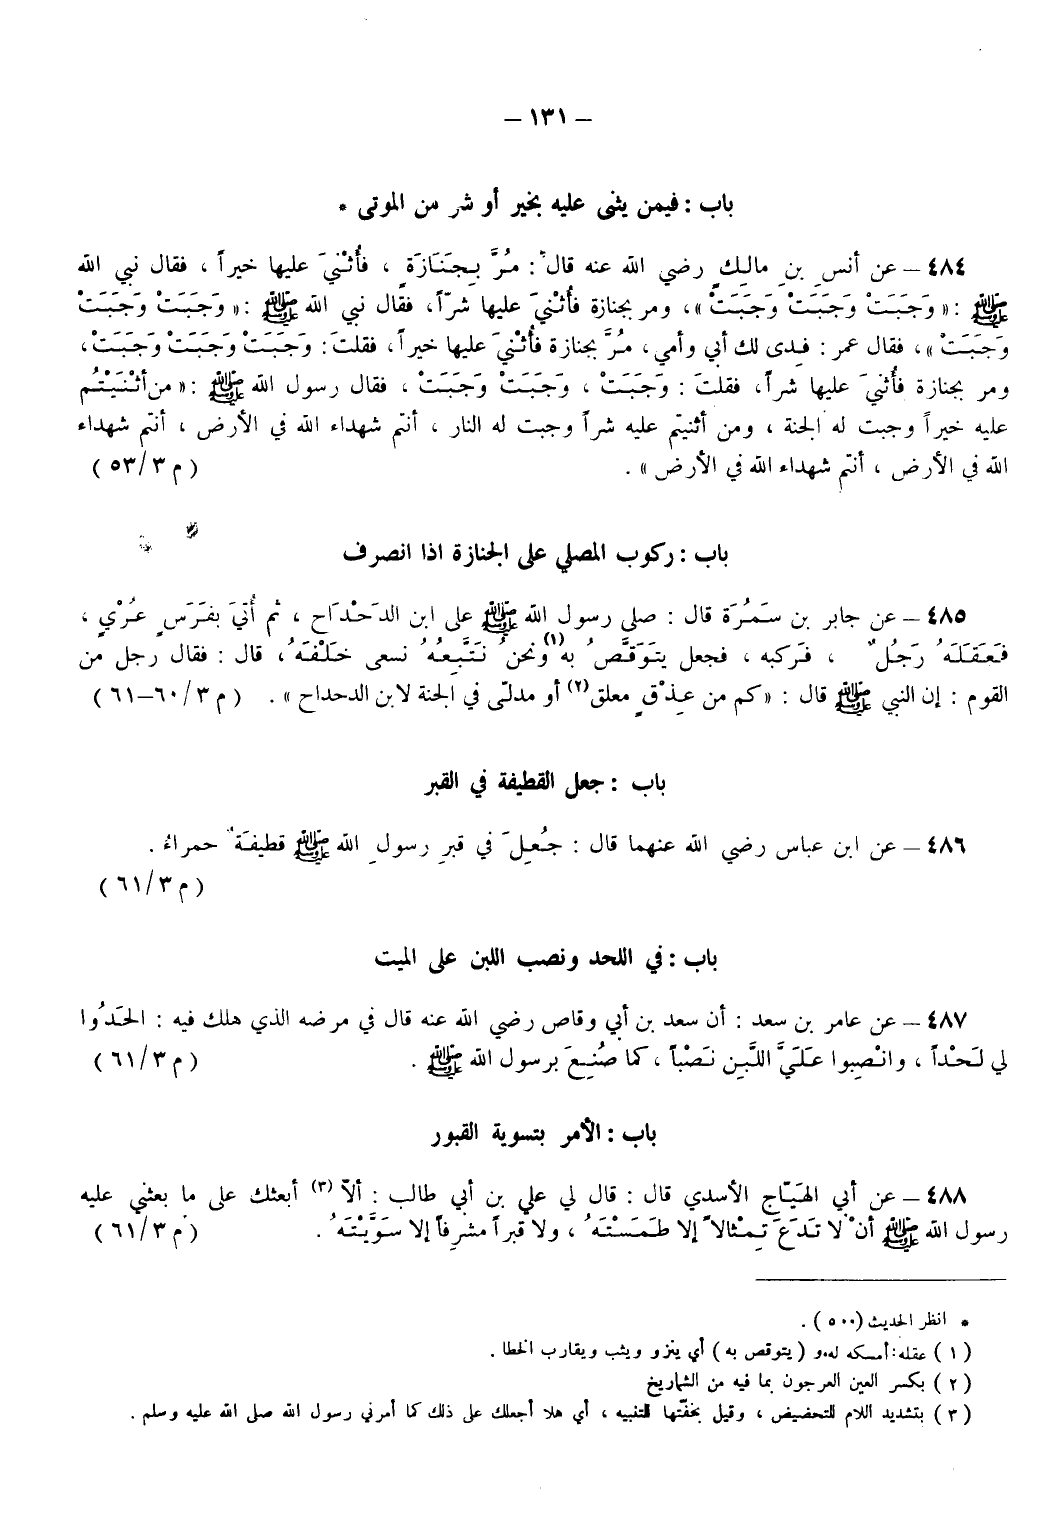 – ١٣١ –
باب : فيمن يثنى عليه بخير أو شر من الموتى *
٤٨٤ – عن أنسِ بنِ مالكٍ رضي الله عنه قال : مُرَّ بِجَنَازَةٍ ، فأُثْنيَ عليها خيراً ، فقال نبي الله
ﷺ : « وَجَبَتْ وَجَبَتْ وَجَبَتْ » ، ومر بجنازة فأُثْنيَ عليها شرّاً، فقال نبي الله ﷺ : « وَجَبَتْ وَجَبَتْ
وَجَبَتْ » ، فقال عمر : فِدى لك أبي وأمي ، مُرَّ بجنازة فأُثْنيَ عليها خيراً ، فقلتَ : وَجَبَتْ وَجَبَتْ وَجَبَتْ ،
ومر بجنازة فأُثنيَ عليها شراً، فقلتَ : وَجَبَتْ ، وَجَبَتْ وَجَبَتْ ، فقال رسول الله ﷺ : « من أثْنَيْتُم
عليه خيراً وجبت له الجنة ، ومن أثنيتم عليه شراً وجبت له النار ، أنتم شهداء الله في الأرض ، أنتم شهداء
الله في الأرض ، أنتم شهداء الله في الأرض » . ( م ٥٣/٣ )
باب : ركوب المصلي على الجنازة اذا انصرف
٤٨٥ – عن جابر بن سَمُرَة قال : صلى رسول الله ﷺ على ابن الدَحْدَاح ، ثم أُتيَ بفَرَسٍ عُرْيٍ ،
فَعَقَلَهُ رَجُلٌ ، فركبه ، فجعل يتَوَقَّصُ به(١) ونحنُ نَتَّبِعُهُ نسعى خَلْفَهُ ، قال : فقال رجل من
القوم : إن النبي ﷺ قال : « كم من عِذْقٍ معلق(٢) أو مدلّى في الجنة لابن الدحداح » . ( م ٦٠/٣–٦١ )
باب : جعل القطيفة في القبر
٤٨٦ – عن ابن عباس رضي الله عنهما قال : جُعِلَ في قبرِ رسولِ الله ﷺ قطيفَةٌ حمراءُ .
( م ٦١/٣ )
باب : في اللحد ونصب اللبن على الميت
٤٨٧ – عن عامر بن سعد : أن سعد بن أبي وقاص رضي الله عنه قال في مرضه الذي هلك فيه : الحَدُوا
لي لَحْداً ، وانْصِبوا عَلَيَّ اللَّبِن نَصْباً ، كما صُنِعَ برسول الله ﷺ . ( م ٦١/٣ )
باب : الأمر بتسوية القبور
٤٨٨ – عن أبي الهَيّاج الأسدي قال : قال لي علي بن أبي طالب : ألاّ (٣) أبعثك على ما بعثني عليه
رسول الله ﷺ أنْ لا تَدَعَ تِمْثالاً إلا طَمَسْتَهُ ، ولا قبراً مشرِفاً إلا سَوَّيْتَهُ . ( م ٦١/٣ )
* انظر الحديث (٥٠٠) .
( ١ ) عقله : أمسكه له. و ( يتوقص به ) أي ينزو ويثب ويقارب الخطا .
( ٢ ) بكسر العين العرجون بما فيه من الشماريخ
( ٣ ) بتشديد اللام للتحضيض ، وقيل بخفّتها للتنبيه ، أي هلا أجعلك على ذلك كما أمرني رسول الله صلى الله عليه وسلم .